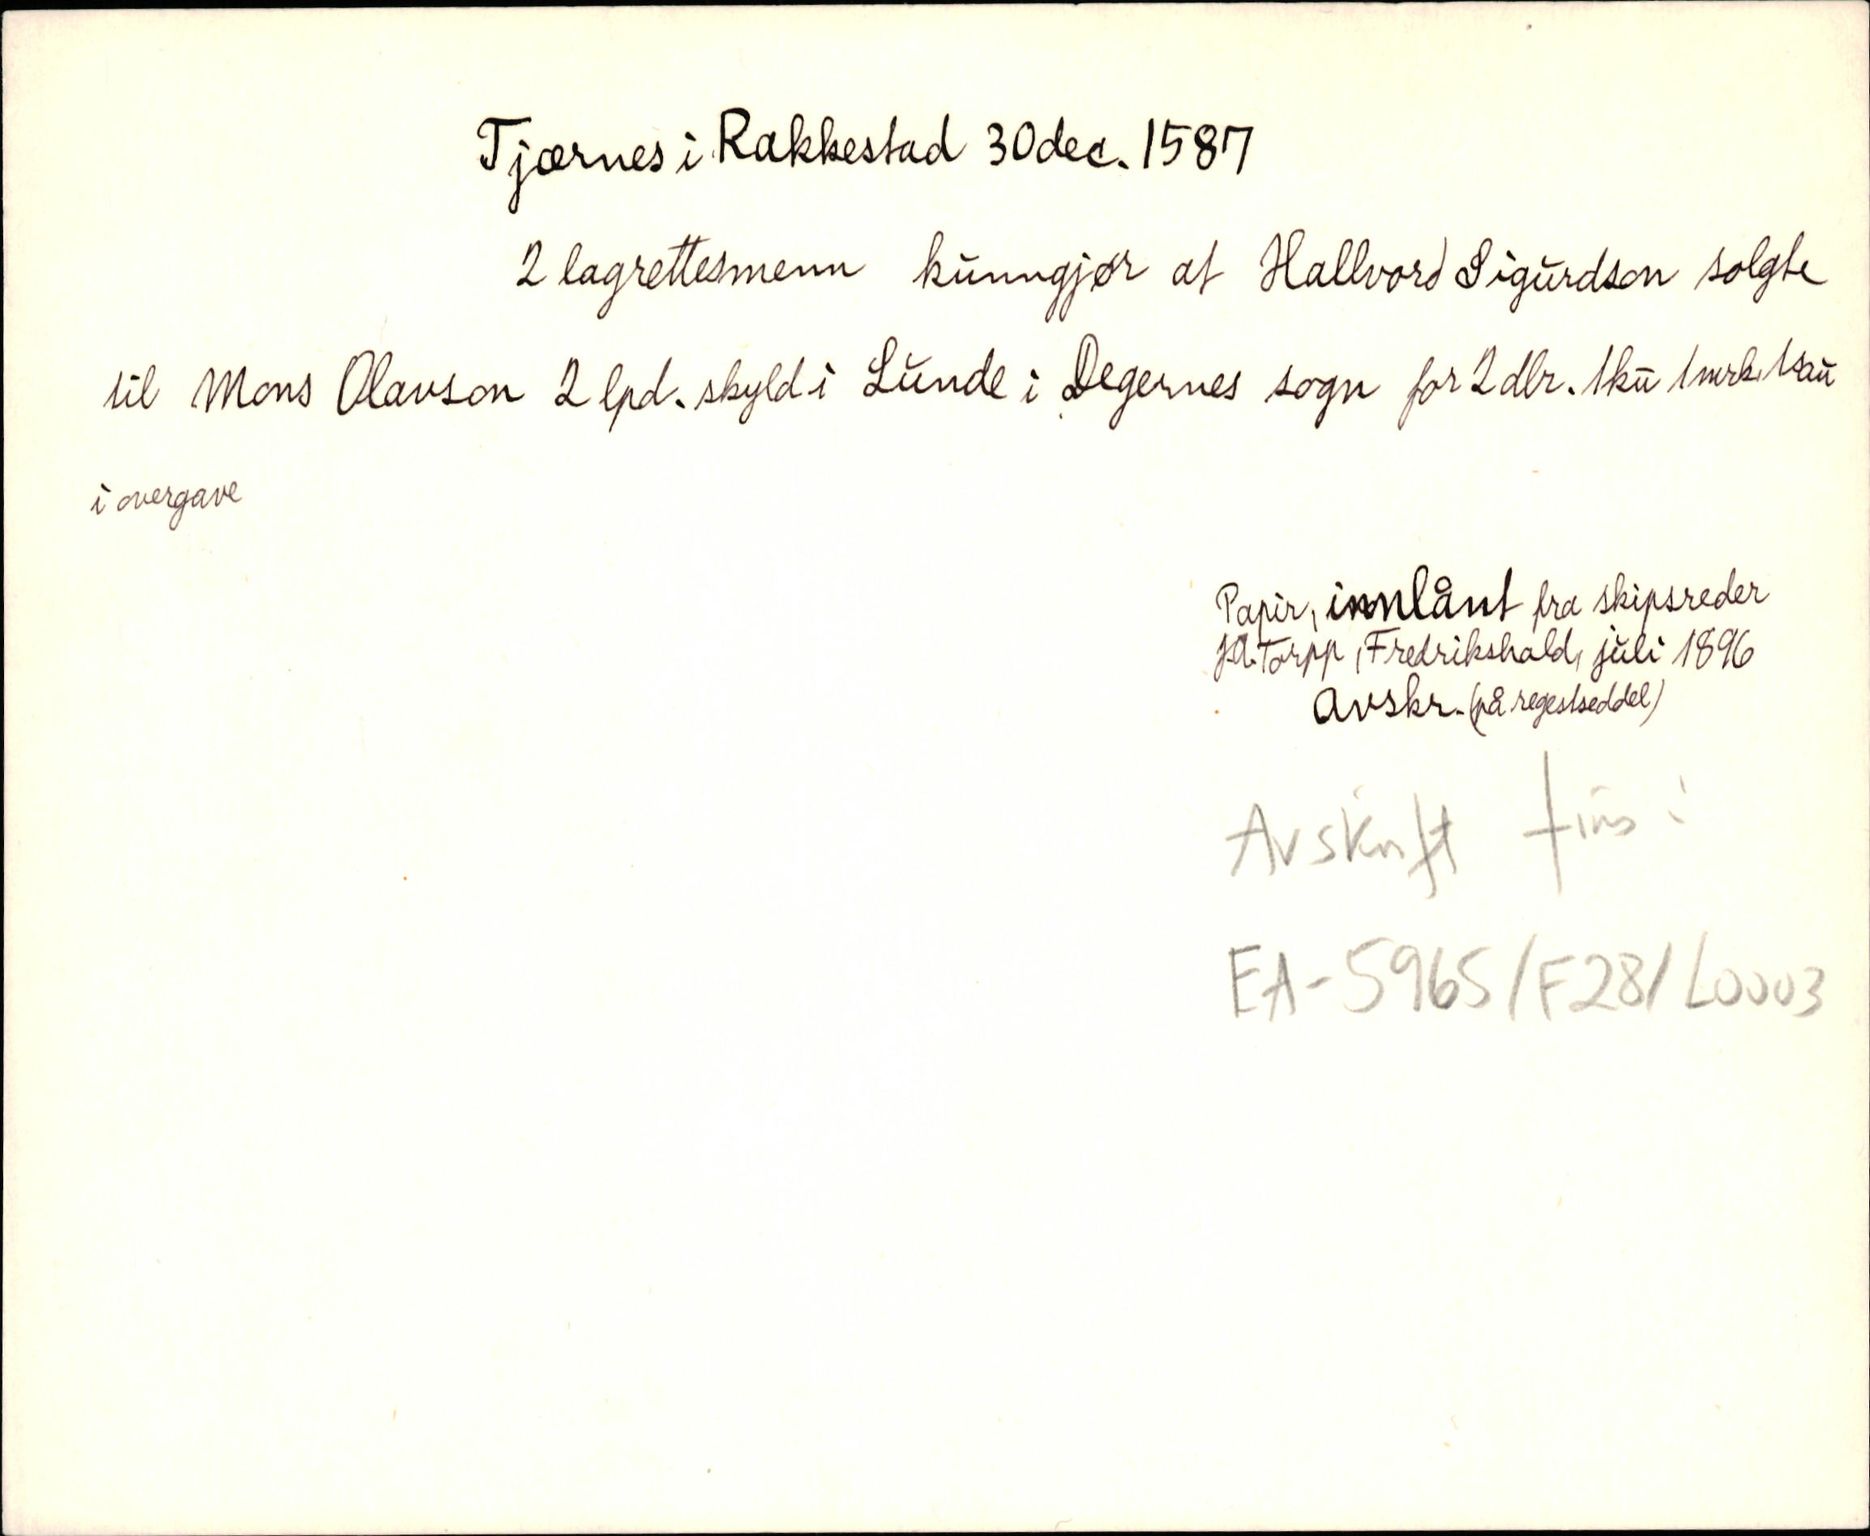 Tjærnes i Rakkestad 30 dec. 1587
2 lagrettesmenn kunngjør at Hallvord Sigurdson solgte
til Mons Olavson 2 lpd. skyld i Lunde i Degernes sogn for 2 dlr. 1 ku 1 mrk. 1 sau
i overgave
Papir, innlånt fra skipsreder
Torpp, Fredrikshald, juli 1896
Avskr. (på regestseddel)
Avskrift fins i
EA-5965/F28/L0003